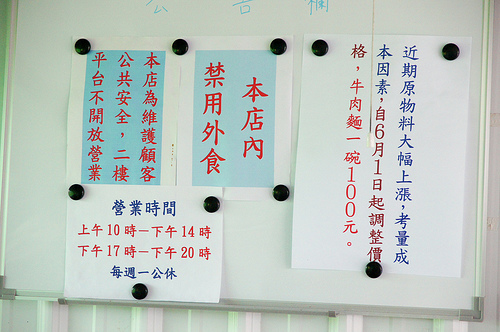 公告欄
本店為維護顧客
公共安全，二樓
平台不開放營業
本店內
禁用外食
近期原物料大幅上漲，考量成
本因素，自6月1日起調整價
格，牛肉麵一碗100元。
營業時間
上午10時－下午14時
下午17時－下午20時
每週一公休